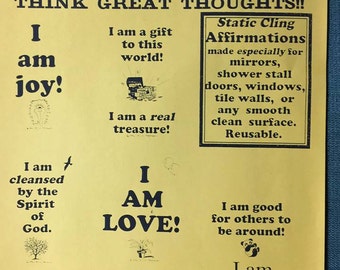 THINK GREAT THOUGHTS!!
I
am
joy!
I am a gift
to this
world!
I am a real
treasure!
Static Cling
Affirmations
made especially for
mirrors,
shower stall
doors, windows,
tile walls, or
any smooth
clean surface.
Reusable.
I am
cleansed
by the
Spirit
of
God.
I
AM
LOVE!
I am good
for others to
be around!
I am